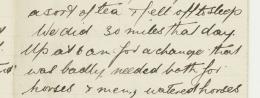 a sort of tea & fell off to sleep
We did 30 miles that day.
Up at 6 am for a change that
was badly needed both for
horses & men, watered horses